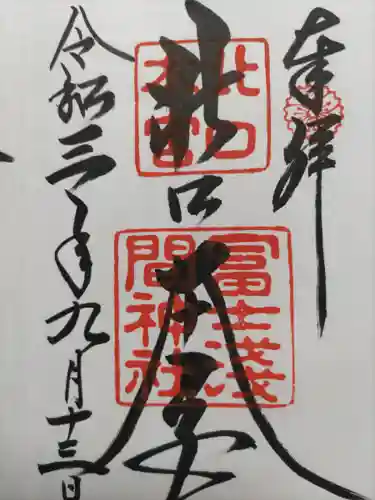 奉拝
北口本宮
北口
本宮
冨士浅
間神社
令和三年九月十三日